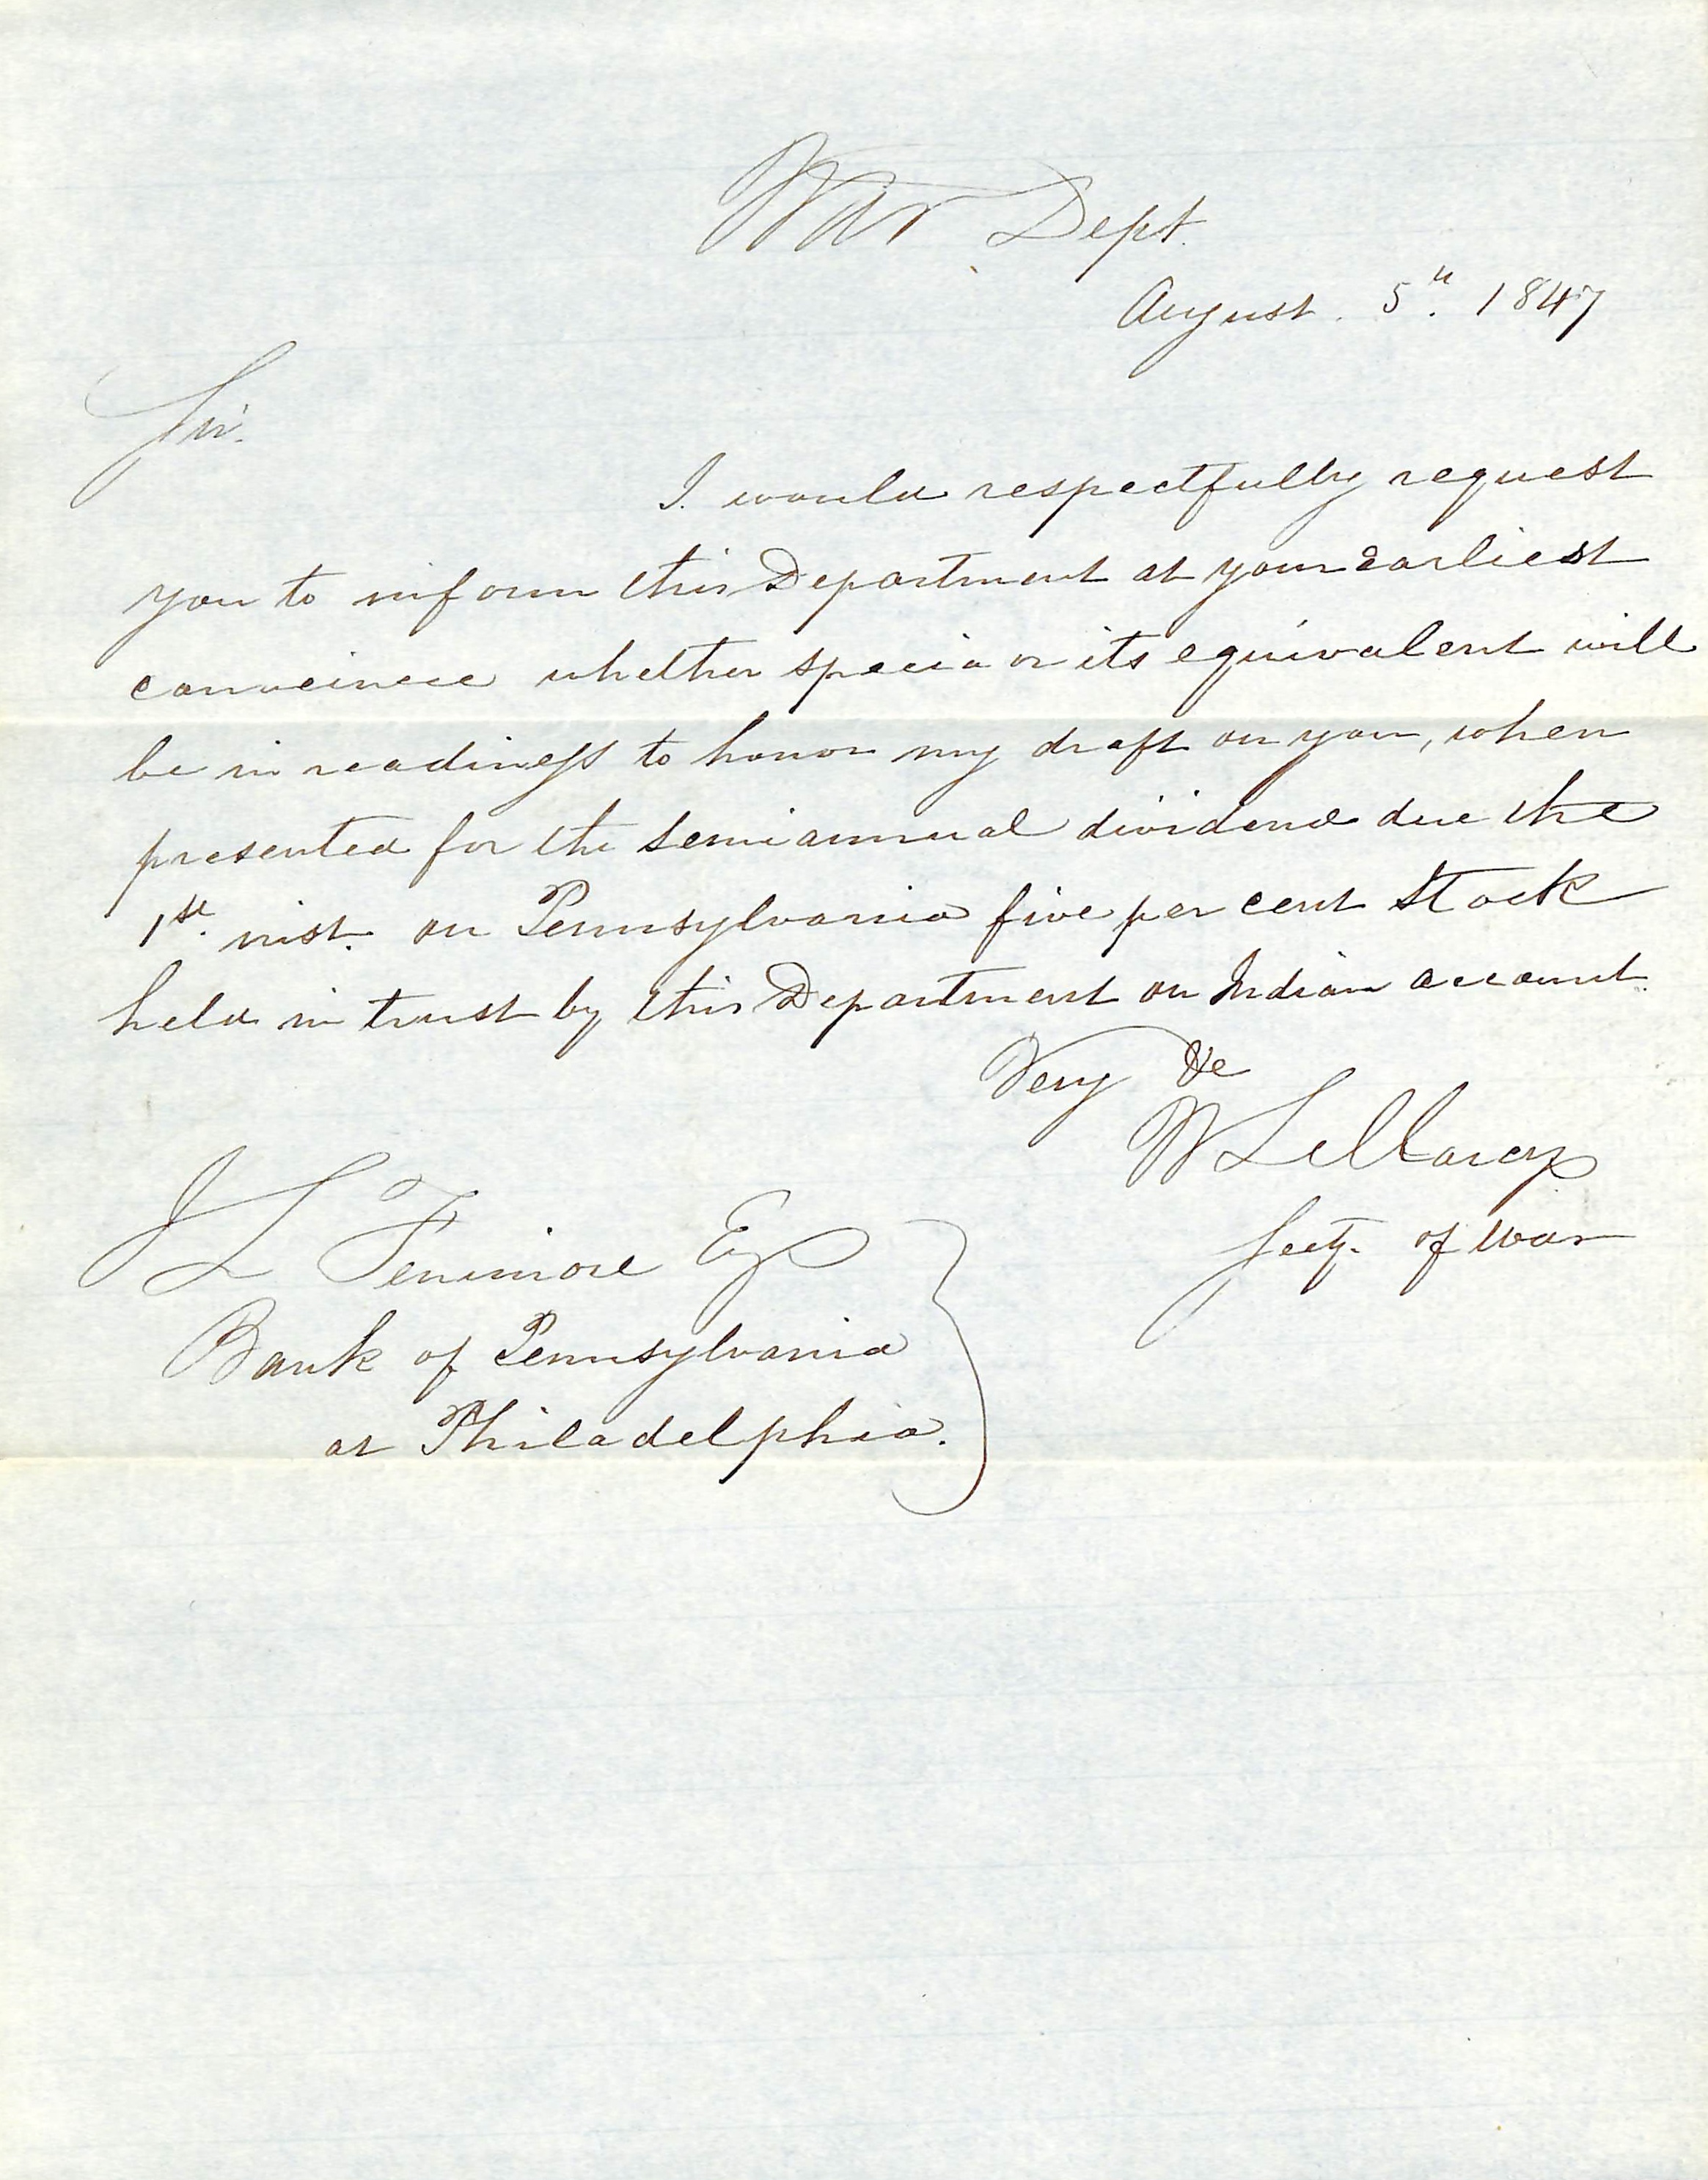 War Dept.
August. 5th. 1847
Sir.
I. would respectfully request
you to inform this Department at your earliest
conveinece whether specia or its equivalent will
be in readiness to honor my draft on you, when
presented for the semi annual dividend due the
1st. inst. on Pennsylvania five per cent Stock
held in trust by this Department on Indian account.
Very &c
W L Marcy
Secty. of War
J L Fenimore Esq
Bank of Pennsylvania
at Philadelphia.